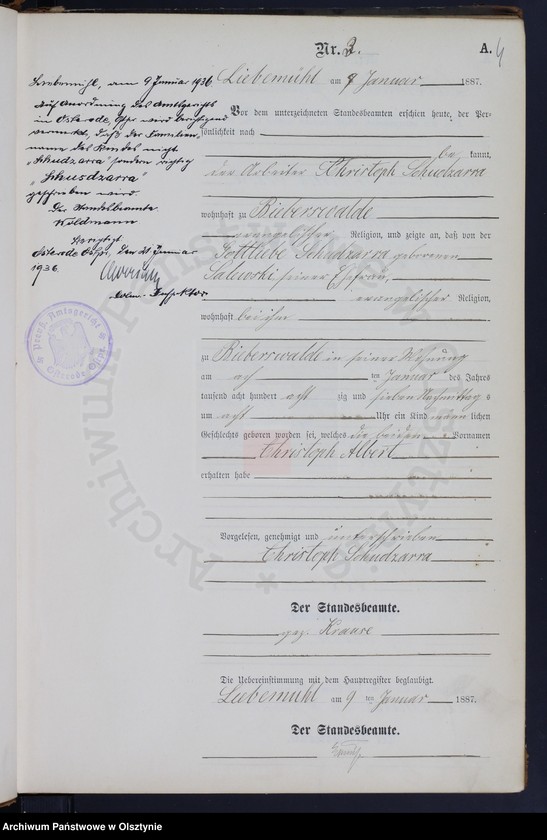 Nr. 2.
A. 4
Liebemühl, am 9 Januar 1936
Auf Anordnung des Amtsgerichts
in Osterode, Ostpr. wird berichtigend
vermerkt, daß der Familien-
name des Kindes nicht
"Schudzarra" sondern richtig
"Schusdzarra"
geschrieben wird.
Der Standesbeamte
Woldmann
Osterode Ostpr., den 21. Januar
1936.
Preuß. Amtsgericht
Osterode Ostpr.
Liebemühl am 9 Januar 1887.
Vor dem unterzeichneten Standesbeamten erschien heute, der Per-
sönlichkeit nach
be kannt,
der Arbeiter Christoph Schudzarra
wohnhaft zu Bieberswalde
evangelischer Religion, und zeigte an, daß von der
Gottliebe Schudzarra geborenen
Salewski seiner Ehefrau,
evangelischer Religion,
wohnhaft bei ihm
zu Bieberswalde in seiner Wohnung
am ach ten Januar des Jahres
tausend acht hundert acht zig und sieben Nachmittag s
um acht Uhr ein Kind männ lichen
Geschlechts geboren worden sei, welches die beiden Vornamen
Christoph Albert
erhalten habe
Vorgelesen, genehmigt und unterschrieben
Christoph Schudzarra
Der Standesbeamte.
gez. Krause
Die Uebereinstimmung mit dem Hauptregister beglaubigt.
Liebemühl am 9 ten Januar 1887.
Der Standesbeamte.
Archiwum Państwowe w Olsztynie